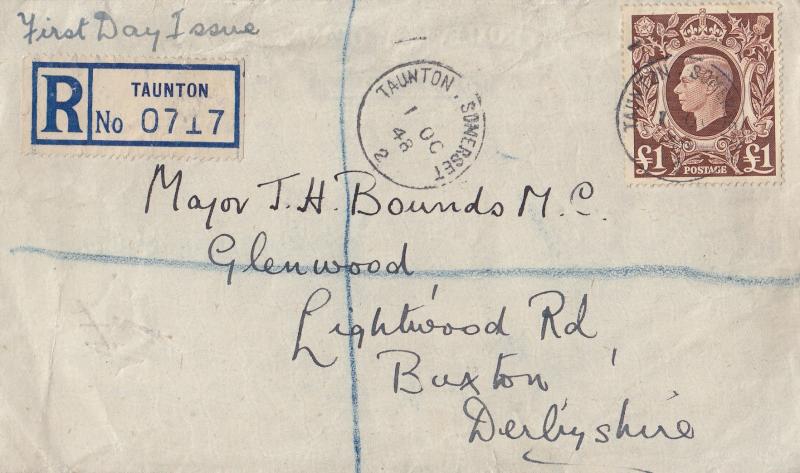 First Day Issue
R
TAUNTON
No 0717
TAUNTON. SOMERSET
1 OC
48
2
TAUNTON SOM
1
£1 £1
POSTAGE
Major J. H. Bounds M.C.
Glenwood,
Lightwood Rd,
Buxton,
Derbyshire